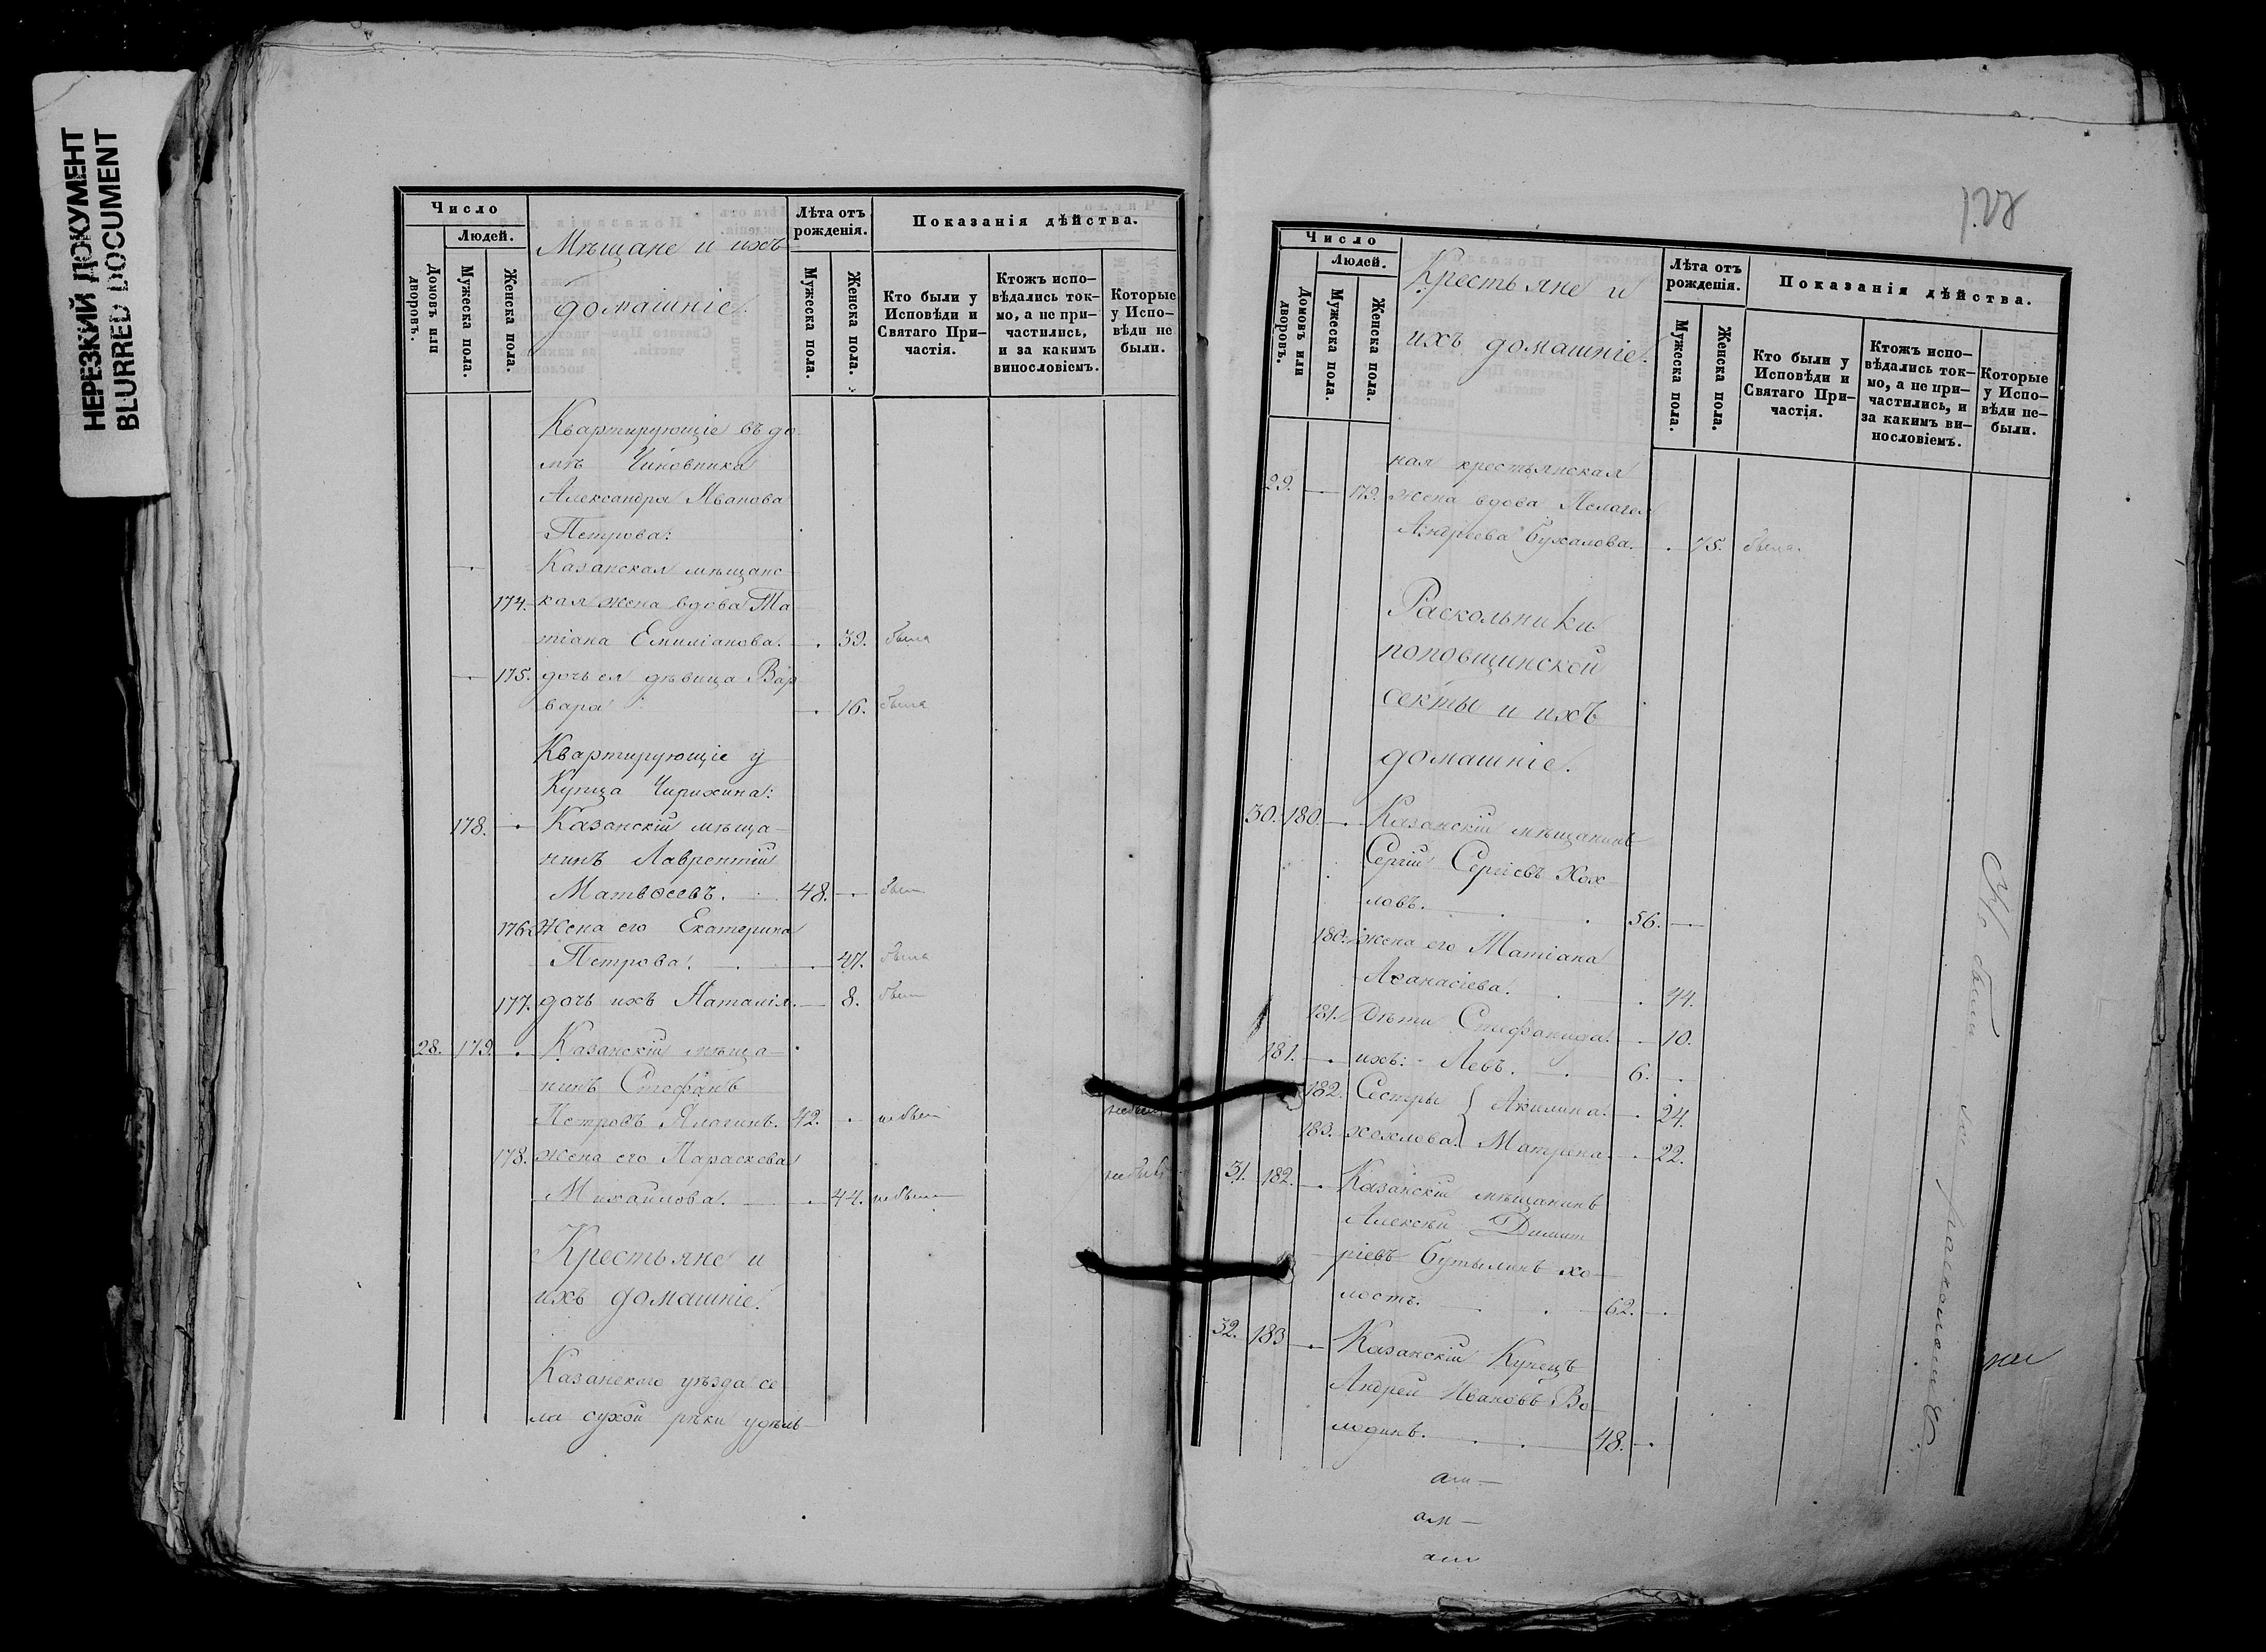 НЕРЕЗКИЙ ДОКУМЕНТ
BLURRED DOCUMENT
Число
Людей.
Домовъ или дворовъ.
Мужеска пола.
Женска пола.
Мѣщане и ихъ
домашніе.
Лѣта отъ рожденія.
Мужеска пола.
Женска пола.
Показанія дѣйства.
Кто были у Исповѣди и Святаго При-частія.
Ктожъ испо-вѣдались ток-мо, а не при-частились, и за какимъ винословіемъ.
Которые у Испо-вѣди не были.
Квартирующіе въ до-
мѣ Чиновника
Александра Иванова
Петрова:
Казанская мѣщанс-
174. кая жена вдова Та-
тіана Емиліанова. 39. была
175. дочь ея дѣвица Вар-
вара 16. была
Квартирующіе у
Купца Чирихина:
178. Казанскій мѣща-
нинъ Лаврентій
Матвѳеевъ. 48. был
176. Жена его Екатерина
Петрова. 47. была
177. дочь ихъ Наталія. 8. был
28. 179. Казанскій мѣща-
нинъ Стефанъ
Петровъ 42. не был
178. жена его Параскева
Михаилова. 44. не был
Крестьяне и
ихъ домашніе.
Казанскаго уѣзда се-
ла сухой рѣки удѣль-
221
Число
Людей.
Домовъ или дворовъ.
Мужеска пола.
Женска пола.
Крестьяне и
ихъ домашніе.
Лѣта отъ рожденія.
Мужеска пола.
Женска пола.
Показанія дѣйства.
Кто были у Исповѣди и Святаго При-частія.
Ктожъ испо-вѣдались ток-мо, а не при-частились, и за какимъ ви-нословіемъ.
Которые у Испо-вѣди не-были.
ная крестьянская
29. 179. жена вдова Пелагея
Андреева Бухалова. 75. была.
Раскольники
поповщинской
секты и ихъ
домашніе.
30. 180. Казанскій мѣщанинъ
Сергій Сергіевъ Хох-
ловъ. 56.
180. жена его Татіана
Аѳанасіева. 44.
181. Дѣти Стефанида. 10.
181. ихъ: Левъ. 6.
182. Сестры { Акилина. 24.
183. Хохлова { Матрона. 22.
31. 182. Казанскій мѣщанинъ
Алексѣй Димит-
ріевъ Бутылинъ хо-
лостъ. 62.
32. 183. Казанскій Купецъ
Андрей Ивановъ Во-
лодинъ. 48.